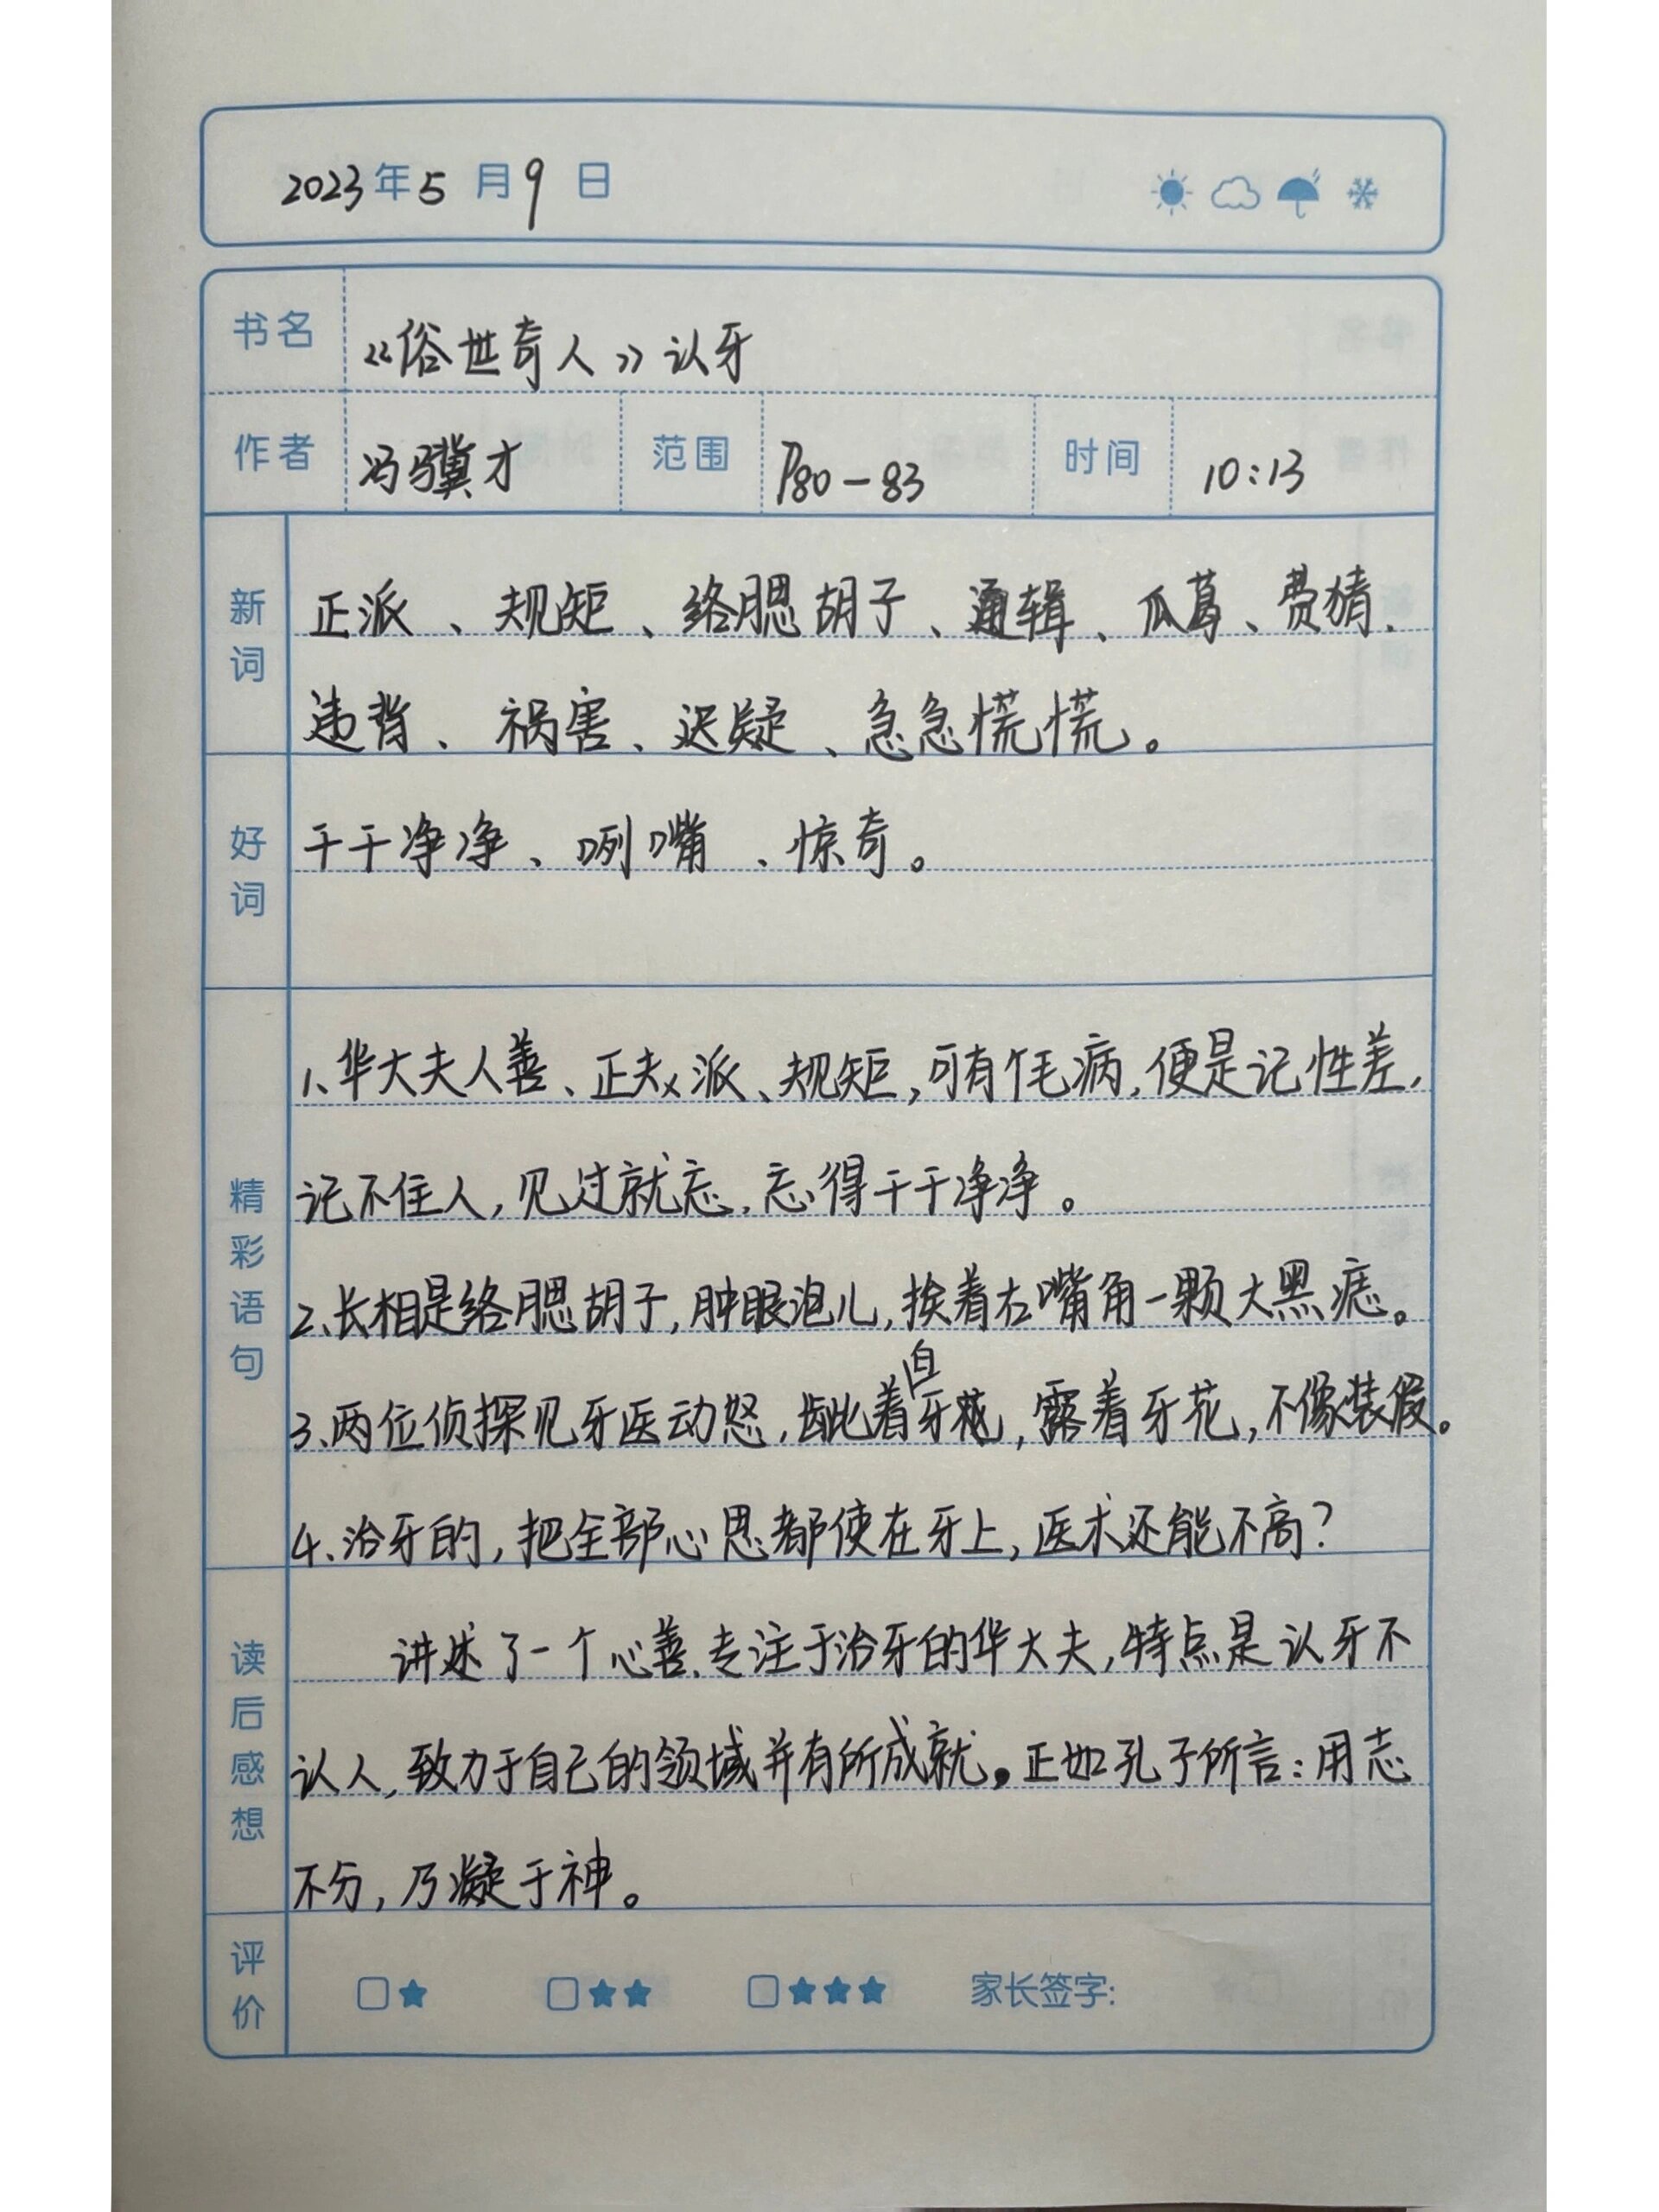 2023年5月9日
书名 《俗世奇人》认牙
作者 冯骥才 范围 P80-83 时间 10:13
新词 正派、规矩、络腮胡子、通辑、瓜葛、费猜、
违背、祸害、迟疑、急急慌慌。
好词 干干净净、咧嘴、惊奇。
精彩语句 1、华大夫人善、正派、规矩,可有个毛病,便是记性差,
记不住人,见过就忘,忘得干干净净。
2、长相是络腮胡子,肿眼泡儿,挨着右嘴角一颗大黑痣。
3、两位侦探见牙医动怒,龇着白牙,露着牙花,不像装假。
4、治牙的,把全部心思都使在牙上,医术还能不高?
读后感想 讲述了一个心善、专注于治牙的华大夫,特点是认牙不
认人,致力于自己的领域并有所成就。正如孔子所言:用志
不分,乃凝于神。
评价 ★ ★★ ★★★ 家长签字: